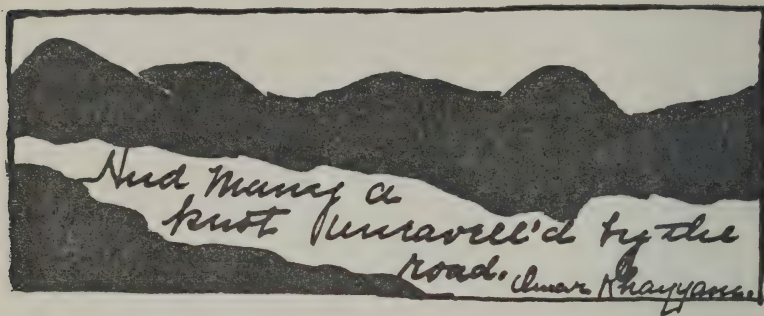 And Many a
knot unravell'd by the
road. Omar Khayyam.